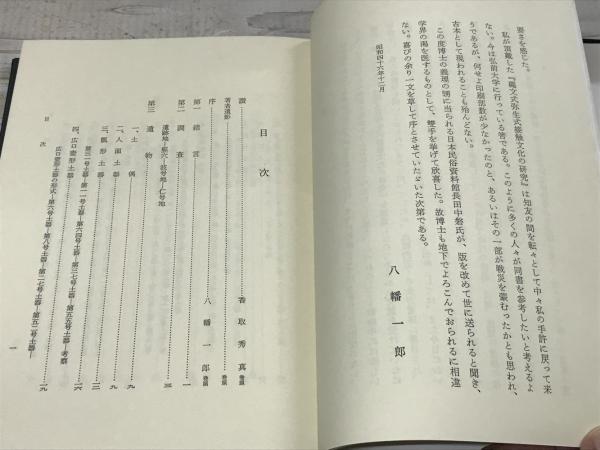 要さを感じた。
私が頂戴した『縄文式弥生式接触文化の研究』は知友の間を転々として中々私の手許に戻って来
ない。今は弘前大学に行っている筈である。このように多くの人々が同書を参考したいと考えるよ
うであるが、何せよ印刷部数が少なかったのと、あるいはその一部が戦災を蒙むったかとも思われ、
古本として現われることも殆んどない。
この度博士の義理の甥に当られる日本民俗資料館長田中磐氏が、版を改めて世に送られると聞き、
学界の渇を医するものとして、雙手を挙げて欣喜した。故博士も地下でよろこんでおられるに相違
ない。喜びの余り一文を草して序とさせていただいた次第である。
昭和四十六年十二月
八幡一郎
目次
讃……香取秀真 巻頭
著者遺影 巻頭
序……八幡一郎 巻頭
第一 緒言……一
第二 調査……三
遺跡地―
第三 遺物
一、土偶……九
二、人面土器……九
三、瓢形土器……一三
四、広口壺形土器……一六
目次
一